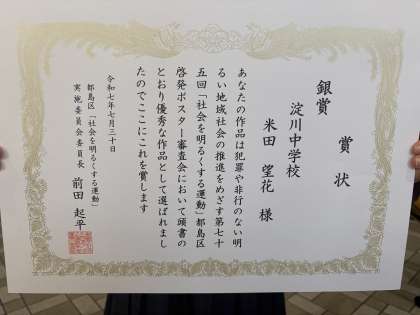 賞状
銀賞
淀川中学校
米田 望花 様
あなたの作品は犯罪や非行のない明
るい地域社会の推進をめざす第七十
五回「社会を明るくする運動」都島区
啓発ポスター審査会において頭書の
とおり優秀な作品として選ばれまし
たのでここにこれを賞します
令和七年七月三十日
都島区「社会を明るくする運動」
実施委員会委員長 前田 起平